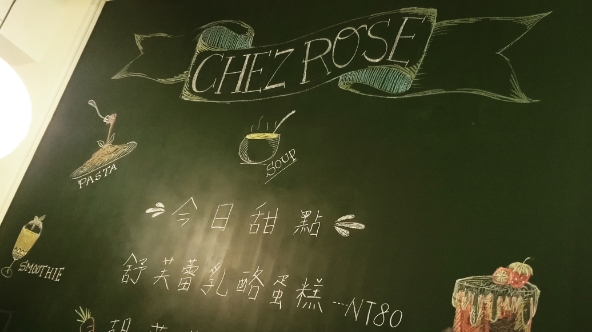 CHEZ ROSE
PASTA
SOUP
今日甜點
SMOOTHIE
舒芙蕾乳酪蛋糕…NT80